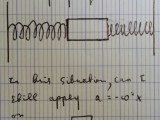 In this situation, can I
still apply a = -ω²x
on